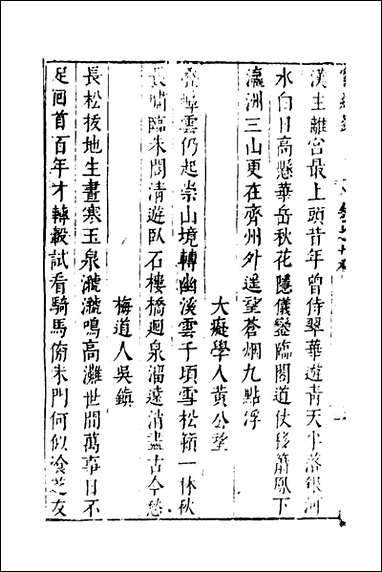 漢主離宮最上頭昔年曾侍翠華遊青天半落銀河
水白日高懸華岳秋花隱儀鑾臨閣道仗移簫鳳下
瀛洲三山更在齊州外遥望蒼烟九點浮
大癡學人黃公望
疊嶂雲仍起崇山境轉幽溪雲千頃雪松籟一林秋
長嘯臨朱閣清遊臥石樓橋迴泉溜遠消盡古今愁
梅道人吳鎮
長松拔地生晝寒玉泉㶁㶁鳴高灘世間萬事日不
足回首百年才轉轂試看騎馬俯朱門何似飡芝友